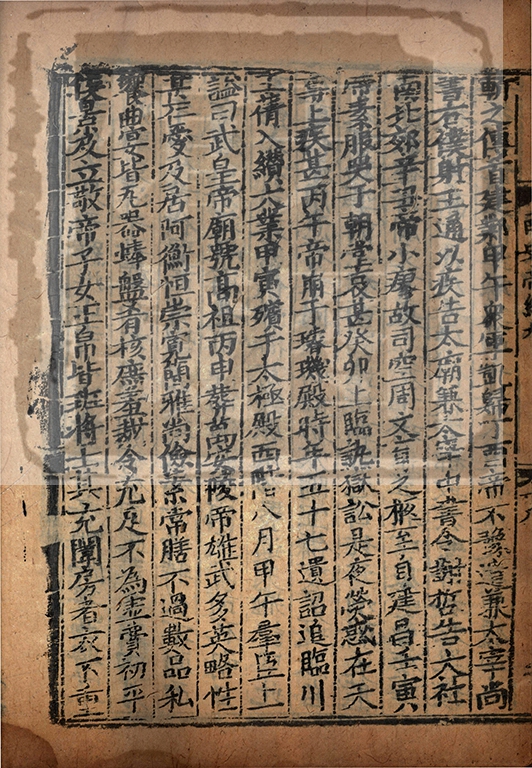 斬之傳首建鄴甲午衆軍凱歸丁酉帝不豫遣兼太宰尚
書右僕射王通以疾告太廟兼太宰中書令謝哲告太社
南北郊辛丑帝小瘳故司空周文育之柩至自建昌壬寅
帝素服哭于朝堂哀甚癸卯上臨訊獄訟是夜熒惑在天
尊上疾甚丙午帝崩于璿璣殿時年五十七遺詔追臨川
王蒨入纘大業甲寅殯于太極殿西階八月甲午羣臣上
謚曰武皇帝廟號高祖丙申葬萬安陵帝雄武多英略性
甚仁愛及居阿衡恒崇寬簡雅尚儉素常膳不過數品私
饗曲宴皆瓦器蚌盤肴核庶羞裁令充足不為虛費初平
侯景及立敬帝子女玉帛皆班將士其充闈房者衣不重